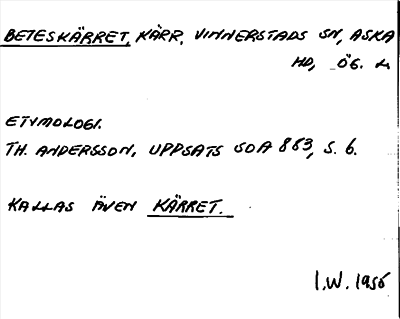 BETESKÄRRET, KÄRR, VINNERSTADS SN, ASKA
HD, ÖG. L
ETYMOLOGI.
TH. ANDERSSON, UPPSATS SOA 883, S. 6.
KALLAS ÄVEN KÄRRET.
I.W. 1956